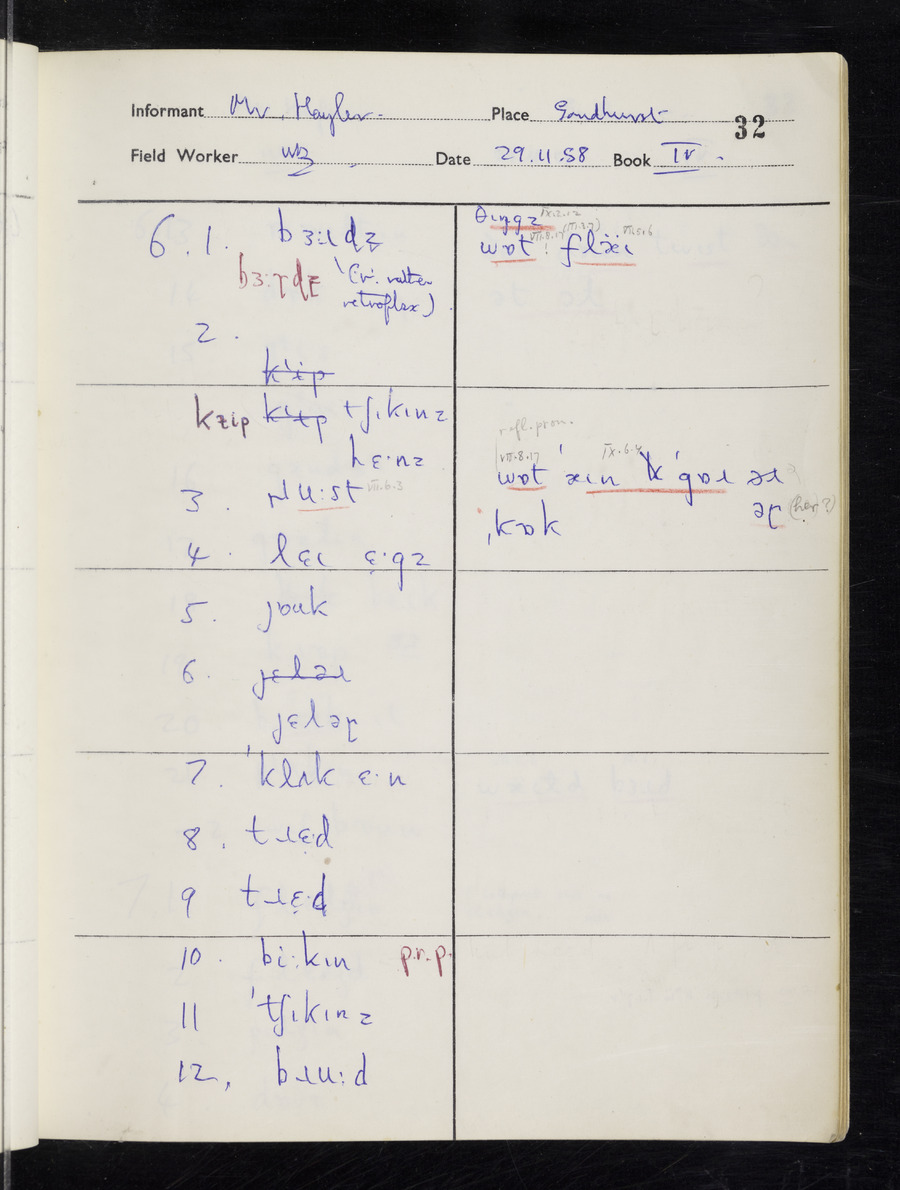 Informant Mr. Hayler. Place Sandhurst 32
Field Worker WB Date 29.11.58 Book IV.
6.1. bɜːɹdẓ
bɜːɽdẓ (v. rather
retroflex)
2.
kɪip
kzip kɪip tʃɪkɪnz
hɛ·nz
3. ɹuːst VII.6.3
4. lɛɪ ɛ·gz
5. jɒuk
6. jɛləɹ
jɛləɽ
7. ˈklʌk ɛ·n
8. tɹɛd
9 tɹɛd
10. biːkɪn p.r.p.
11 ˈtʃɪkɪnz
12. bɹuːd
θɪŋgz IX.2.12
wɒt VII.8.17 flæɪ VII.5.6
refl. pron.
VII.8.17 IX.6.4
wɒt ˈæɪn ˈgɒɪ əɪ
əɽ (her?)
ˌkɒk